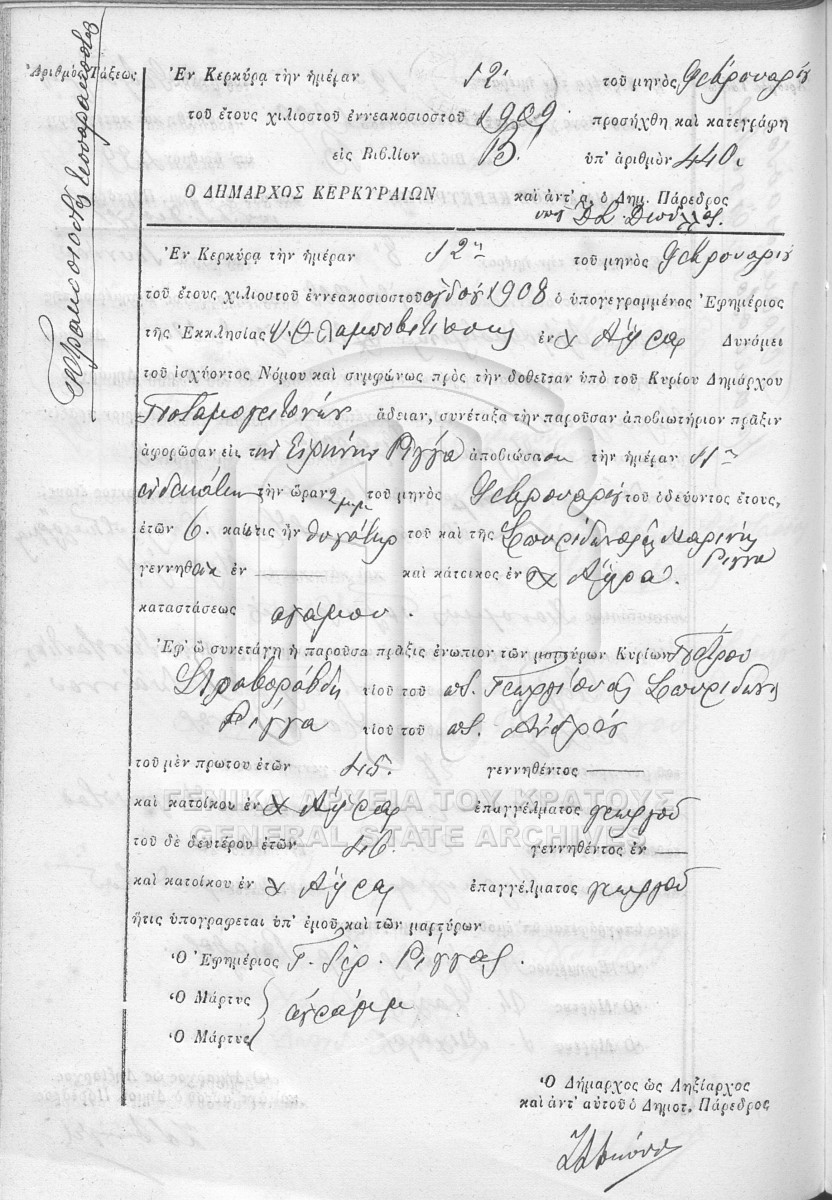 Ἀριθμὸς Τάξεως
Ἐν Κερκύρᾳ τὴν ἡμέραν 12 τοῦ μηνὸς Φεβρουαρίου
τοῦ ἔτους χιλιοστοῦ ἐννεακοσιοστοῦ 1909 προσήχθη καὶ κατεγράφη
εἰς Βιβλίον Β. ὑπ' ἀριθμὸν 440.
Ο ΔΗΜΑΡΧΟΣ ΚΕΡΚΥΡΑΙΩΝ καὶ ἀντ' α. ὁ Δημ. Πάρεδρος
Ἐν Κερκύρᾳ τὴν ἡμέραν 12η τοῦ μηνὸς Φεβρουαρίου
τοῦ ἔτους χιλιοστοῦ ἐννεακοσιοστοῦ ὀγδόου 1908 ὁ ὑπογεγραμμένος Ἐφημέριος
τῆς Ἐκκλησίας Υ. Θ. Λαμποβιτίσσης ἐν χ Αὔρα Δυνάμει
τοῦ ἰσχύοντος Νόμου καὶ συμφώνως πρὸς τὴν δοθεῖσαν ὑπὸ τοῦ Κυρίου Δημάρχου
Ποταμογειτόνων ἄδειαν, συνέταξα τὴν παροῦσαν ἀποβιωτήριον πρᾶξιν
ἀφορῶσαν εἰς τὴν Εἰρήνην Ρίγγα ἀποβιώσασαν τὴν ἡμέραν 11ην
ἑνδεκάτην τὴν ὥραν 2 μμ τοῦ μηνὸς Φεβρουαρίου τοῦ ὁδεύοντος ἔτους,
ἐτῶν 6. καὶ τις ἦν θυγάτηρ τοῦ καὶ τῆς Σπυρίδωνος Μαρίνης
Ρίγγα
γεννηθεῖσα ἐν καὶ κάτοικος ἐν χ Αὔρα.
καταστάσεως ἀγάμου.
Ἐφ' ᾧ συνετάγη ἡ παροῦσα πρᾶξις ἐνώπιον τῶν μαρτύρων Κυρίων Πέτρου
υἱοῦ τοῦ ποτ. Γεωργίου καὶ Σπυρίδωνος
Ρίγγα υἱοῦ τοῦ ποτ. Ἀνδρέου
τοῦ μὲν πρώτου ἐτῶν 45. γεννηθέντος
καὶ κατοίκου ἐν χ Αὔρα ἐπαγγέλματος γεωργοῦ
ΓΕΝΙΚΑ ΑΡΧΕΙΑ ΤΟΥ ΚΡΑΤΟΥΣ
GENERAL STATE ARCHIVES
τοῦ δὲ δευτέρου ἐτῶν 46. γεννηθέντος ἐν
καὶ κατοίκου ἐν χ Αὔρα ἐπαγγέλματος γεωργοῦ
ἥτις ὑπογράφεται ὑπ' ἐμοῦ καὶ τῶν μαρτύρων
Ὁ Ἐφημέριος Γ. Ἱερ. Ρίγγας.
Ὁ Μάρτυς ἀγράμμ
Ὁ Μάρτυς
Ὁ Δήμαρχος ὡς Ληξίαρχος
καὶ ἀντ' αὐτοῦ ὁ Δημοτ. Πάρεδρος